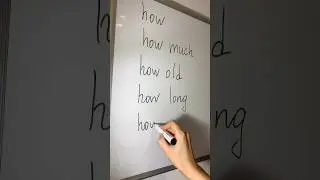 how
how much
how old
how long
how